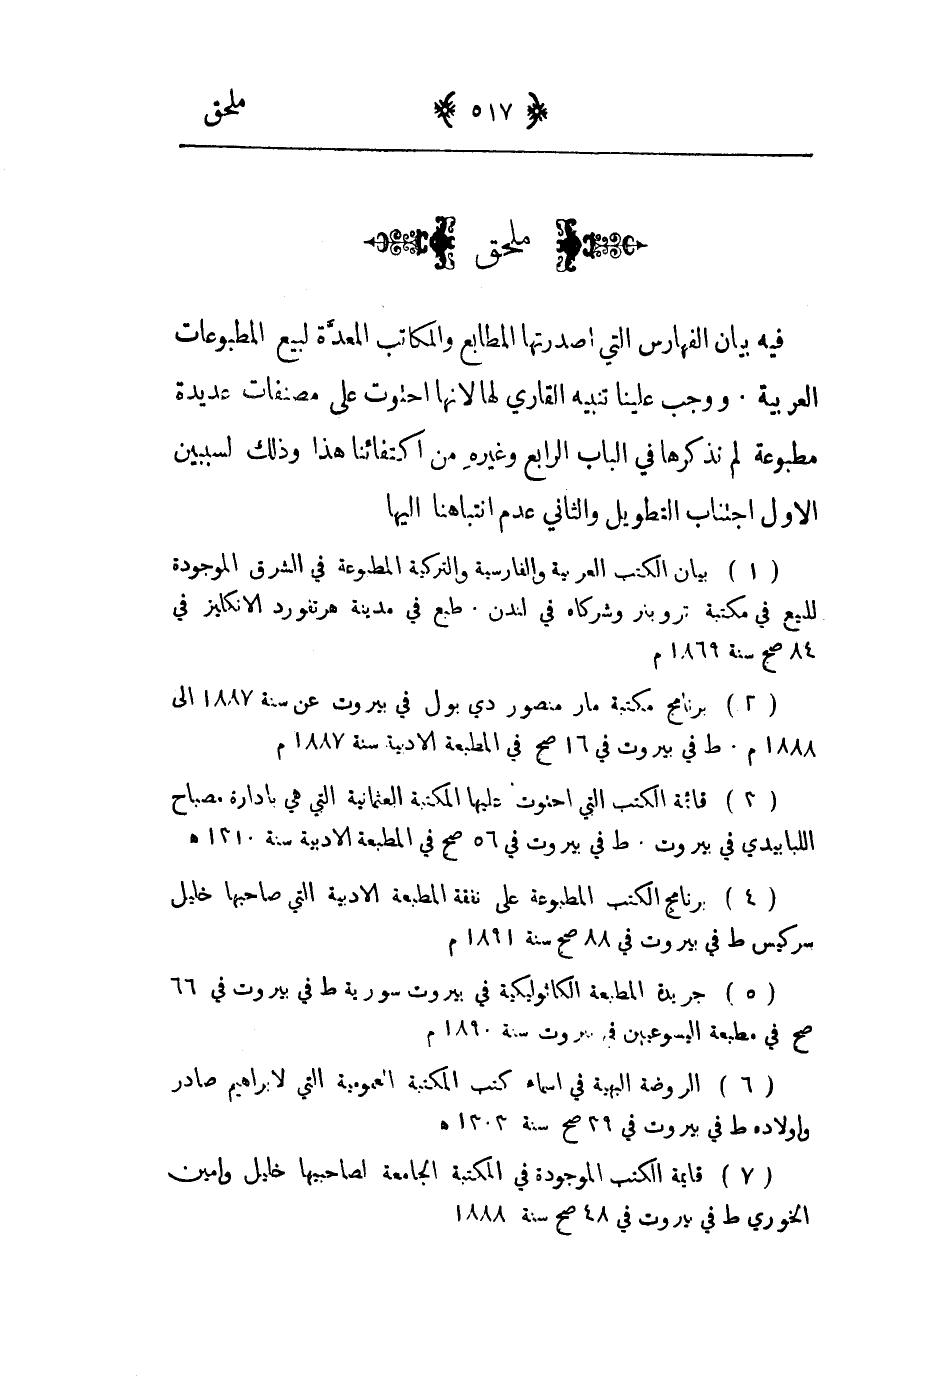 ملحق ﴿ ٥١٧ ﴾
ملحق
فيه بيان الفهارس التي اصدرتها المطابع والمكاتب المعدَّة لبيع المطبوعات
العربية ٠ ووجب علينا تنبيه القاري لها لانها احتوت على مصنفات عديدة
مطبوعة لم نذكرها في الباب الرابع وغيرهِ من اكتفائنا هذا وذلك لسببين
الاول اجتناب التطويل والثاني عدم انتباهنا اليها
( ١ ) بيان الكتب العربية والفارسية والتركية المطبوعة في الشرق الموجودة
للبيع في مكتبة تروبنر وشركاه في لندن ٠ طبع في مدينة هرتفورد الانكليز في
٨٤ صح سنة ١٨٦٩ م
( ٢ ) برنامج مكتبة مار منصور دي بول في بيروت عن سنة ١٨٨٧ الى
١٨٨٨ م ٠ ط في بيروت في ١٦ صح في المطبعة الادبية سنة ١٨٨٧ م
( ٣ ) قائمة الكتب التي احتوت عليها المكتبة العثمانية التي هي بادارة مصباح
اللبابيدي في بيروت ٠ ط في بيروت في ٥٦ صح في المطبعة الادبية سنة ١٣١٠ ه
( ٤ ) برنامج الكتب المطبوعة على نفقة المطبعة الادبية التي صاحبها خليل
سركيس ط في بيروت في ٨٨ صح سنة ١٨٩١ م
( ٥ ) جريدة المطبعة الكاثوليكية في بيروت سورية ط في بيروت في ٦٦
صح في مطبعة اليسوعيين في بيروت سنة ١٨٩٠ م
( ٦ ) الروضة البهية في اسماء كتب المكتبة العمومية التي لابراهيم صادر
واولاده ط في بيروت في ٣٩ صح سنة ١٣٠٣ ه
( ٧ ) قايمة الكتب الموجودة في المكتبة الجامعة لصاحبيها خليل وامين
الخوري ط في بيروت في ٤٨ صح سنة ١٨٨٨